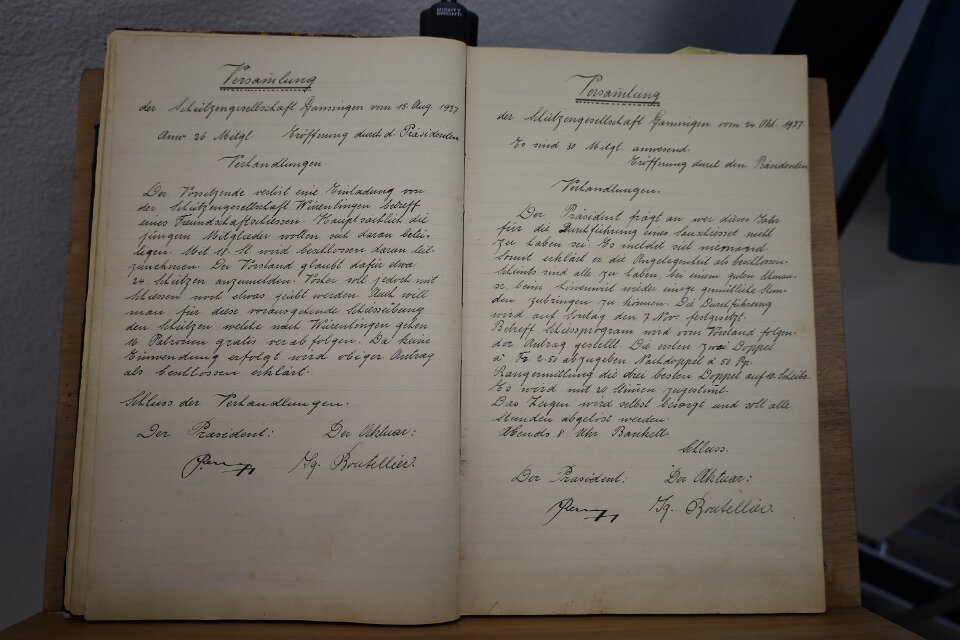 MIGHTY
BRIGHT
Versamlung
der Schützengesellschaft Gansingen vom 15. Aug. 1937
Anw 26 Mitgl Eröffnung durch d. Präsidenten
Verhandlungen.
Der Vorsitzende verlist eine Einladung von
der Schützengesellschaft Würenlingen betreff
eines Freundschaftschiessen. Hauptsächlich die
jüngern Mitglieder wollen sich daran betei-
ligen. Mit 18 St. wird beschlossen daran teil-
zunehmen. Der Vorstand glaubt dafür etwa
24 Schützen anzumelden. Vorher soll jedoch mit
Schiessen noch etwas geübt werden. Auch will
man für diese vorausgehende Schiessübung
den Schützen welche nach Würenlingen gehen
16 Patronen gratis verabfolgen. Da keine
Einwendung erfolgt wird obiger Antrag
als beschlossen erklärt.
Schluss der Verhandlungen.
Der Präsident: Der Aktuar:
Ig. Boutellier.
Versamlung
der Schützengesellschaft Gansingen vom 24 Okt. 1937.
Es sind 30 Mitgl. anwesend.
Eröffnung durch den Präsidenten
Verhandlungen.
Der Präsident frägt an wer dieses Jahr
für die Durchführung eines Sauschiesset nicht
zu haben sei. Es meldet sich niemand.
Somit erklärt er die Angelegenheit als beschlossen.
Scheints sind alle zu haben, bei einem guten Schmau-
se, beim wieder einige gemütliche Stun-
den zubringen zu können. Die Durchführung
wird auf Sontag den 7 Nov. festgesetzt.
Betreff Schiessprogram wird vom Vorstand folgen-
der Antrag gestellt. Die ersten zwei Doppel
à Fr 2.50 abzugeben. Nachdoppel à 50 Rp.
Rangermittlung die drei besten Doppel auf 10. Scheibe.
Es wird mit 20 Stimen zugestimt.
Das Zeigen wird selbst besorgt und soll alle
Stunden abgelöst werden.
Abends 8 Uhr Bankett.
Schluss.
Der Präsident: Der Aktuar:
Ig. Boutellier.